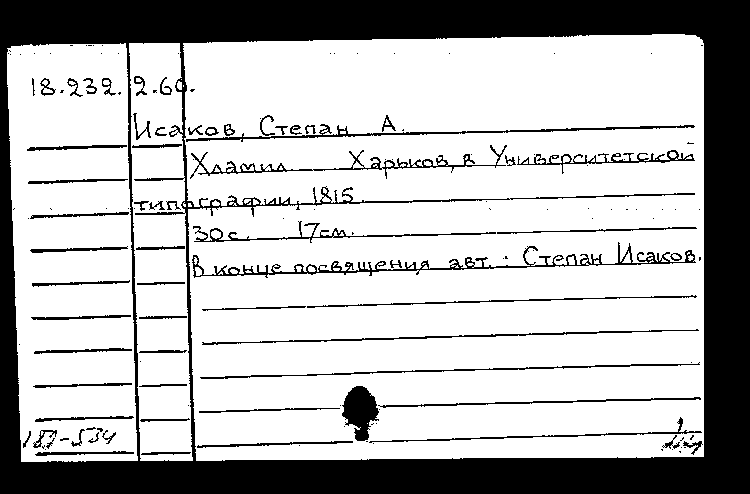 18.232.2.60.
Исаков, Степан А.
Хламил Харьков, в Университетской
типографии, 1815
30с. 17см.
В конце посвящения авт.: Степан Исаков.
181-534